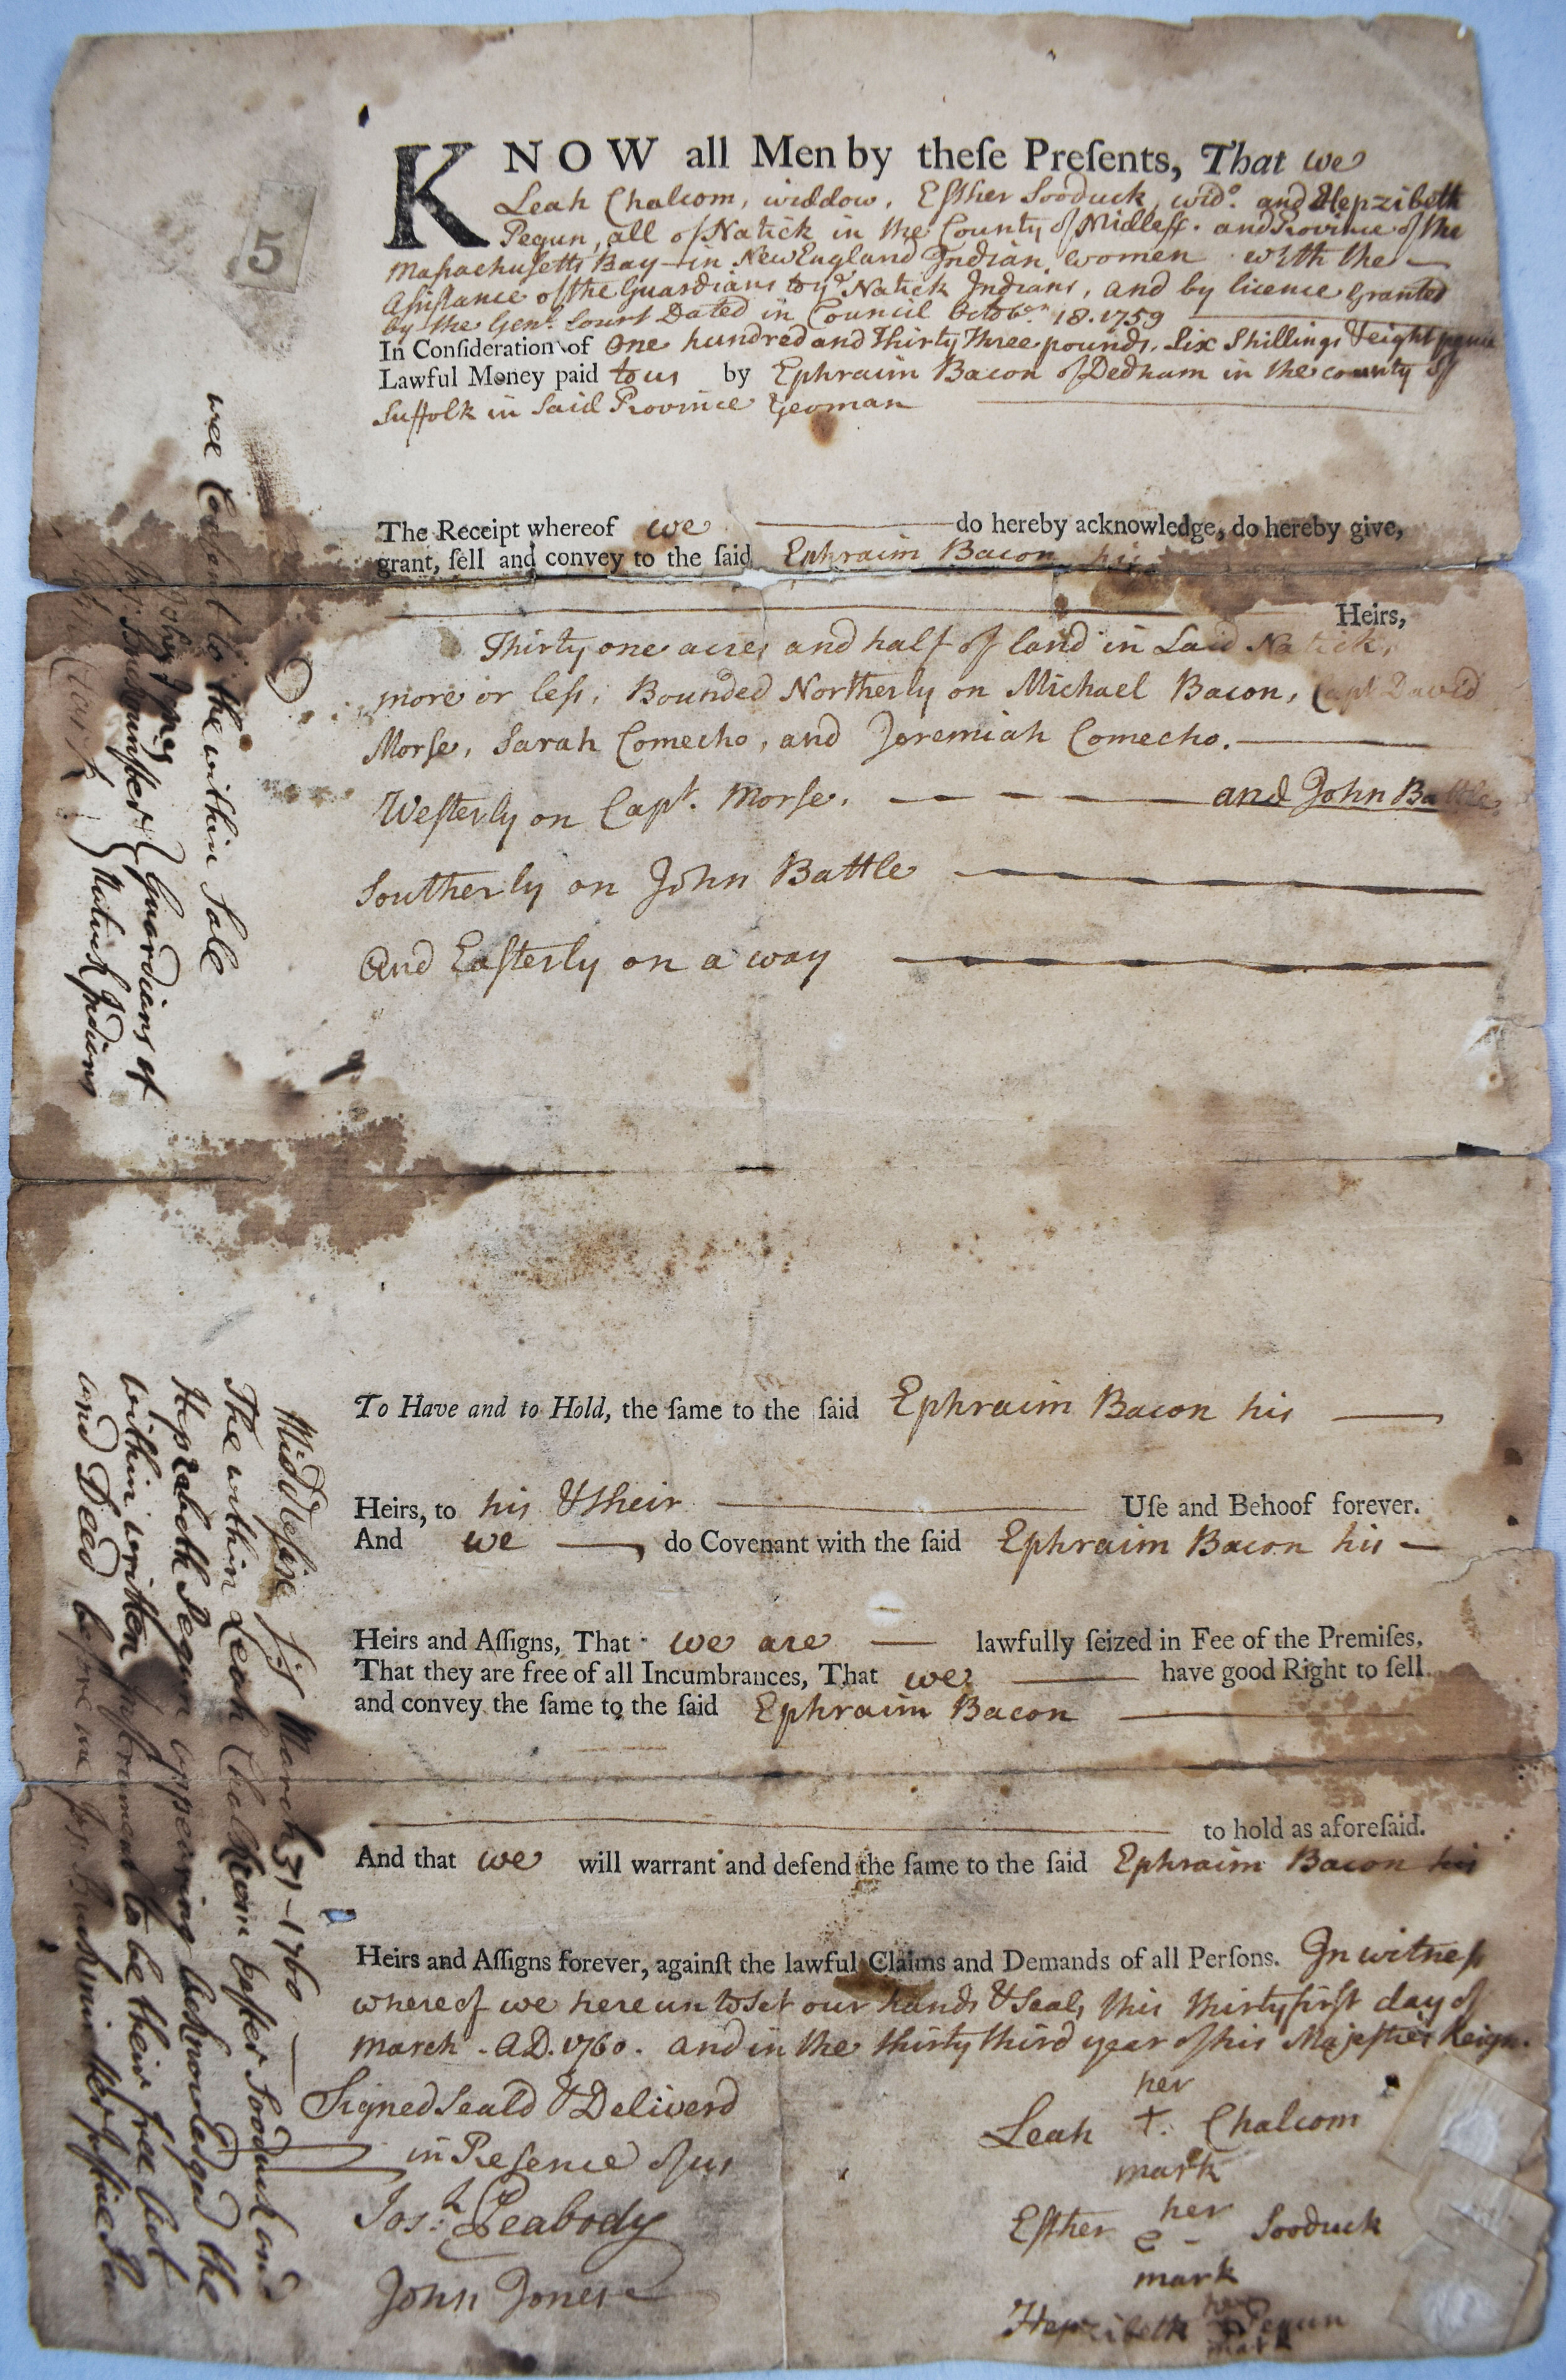 5
KNOW all Men by theſe Preſents, That we
Leah Chalcom, widdow, Eſther Sooduck, wido. and Hepzibeth
Pegun, all of Natick in the County of Midleſſ. and Province of the
Maſsachuſetts Bay in New England Indian women with the
Aſsiſtance of the Guardians to ye Natick Indians, and by licence Granted
by the Genl. Court Dated in Council Octobr. 18. 1759
In Conſideration of One hundred and Thirty Three pounds, Six Shillings & eight pence
Lawful Money paid to us by Ephraim Bacon of Dedham in the county of
Suffolk in Said Province Yeoman
The Receipt whereof we do hereby acknowledge, do hereby give,
grant, ſell and convey to the ſaid Ephraim Bacon his
Heirs,
Thirty one acres and half of land in Said Natick,
more or leſs, Bounded Northerly on Michael Bacon, Capt David
Morſe, Sarah Comecho, and Jeremiah Comecho.
Weſterly on Capt. Morſe. and John Battle
Southerly on John Battle
And Eaſterly on a way
To Have and to Hold, the ſame to the ſaid Ephraim Bacon his
Heirs, to his & their Uſe and Behoof forever.
And we do Covenant with the ſaid Ephraim Bacon his
Heirs and Aſſigns, That we are lawfully ſeized in Fee of the Premiſes,
That they are free of all Incumbrances, That we have good Right to ſell
and convey the ſame to the ſaid Ephraim Bacon
to hold as aforeſaid.
And that we will warrant and defend the ſame to the ſaid Ephraim Bacon his
Heirs and Aſſigns forever, againſt the lawful Claims and Demands of all Perſons. In witneſs
whereof we hereunto Set our hands & Seals this thirty firſt day of
March. A.D. 1760. and in the thirty third year of his Majeſties Reign.
Signed Seald & Deliverd
in Preſence of us
Josh. Peabody
John Jones
her
Leah +. Chalcom
mark
her
Eſther e - Sooduck
mark
her
Hepzibeth Pegun
mark
wee Conſent to the within Sale
John Jones
Guardians of
Natick Indians
Middleſex ſs March 31 - 1760
The within Leah Chalkcom Esſter Sooduck and
Hepzabeth Pegun appearing acknowledged the
within written Inſtrument to be their free Act
and Deed before me